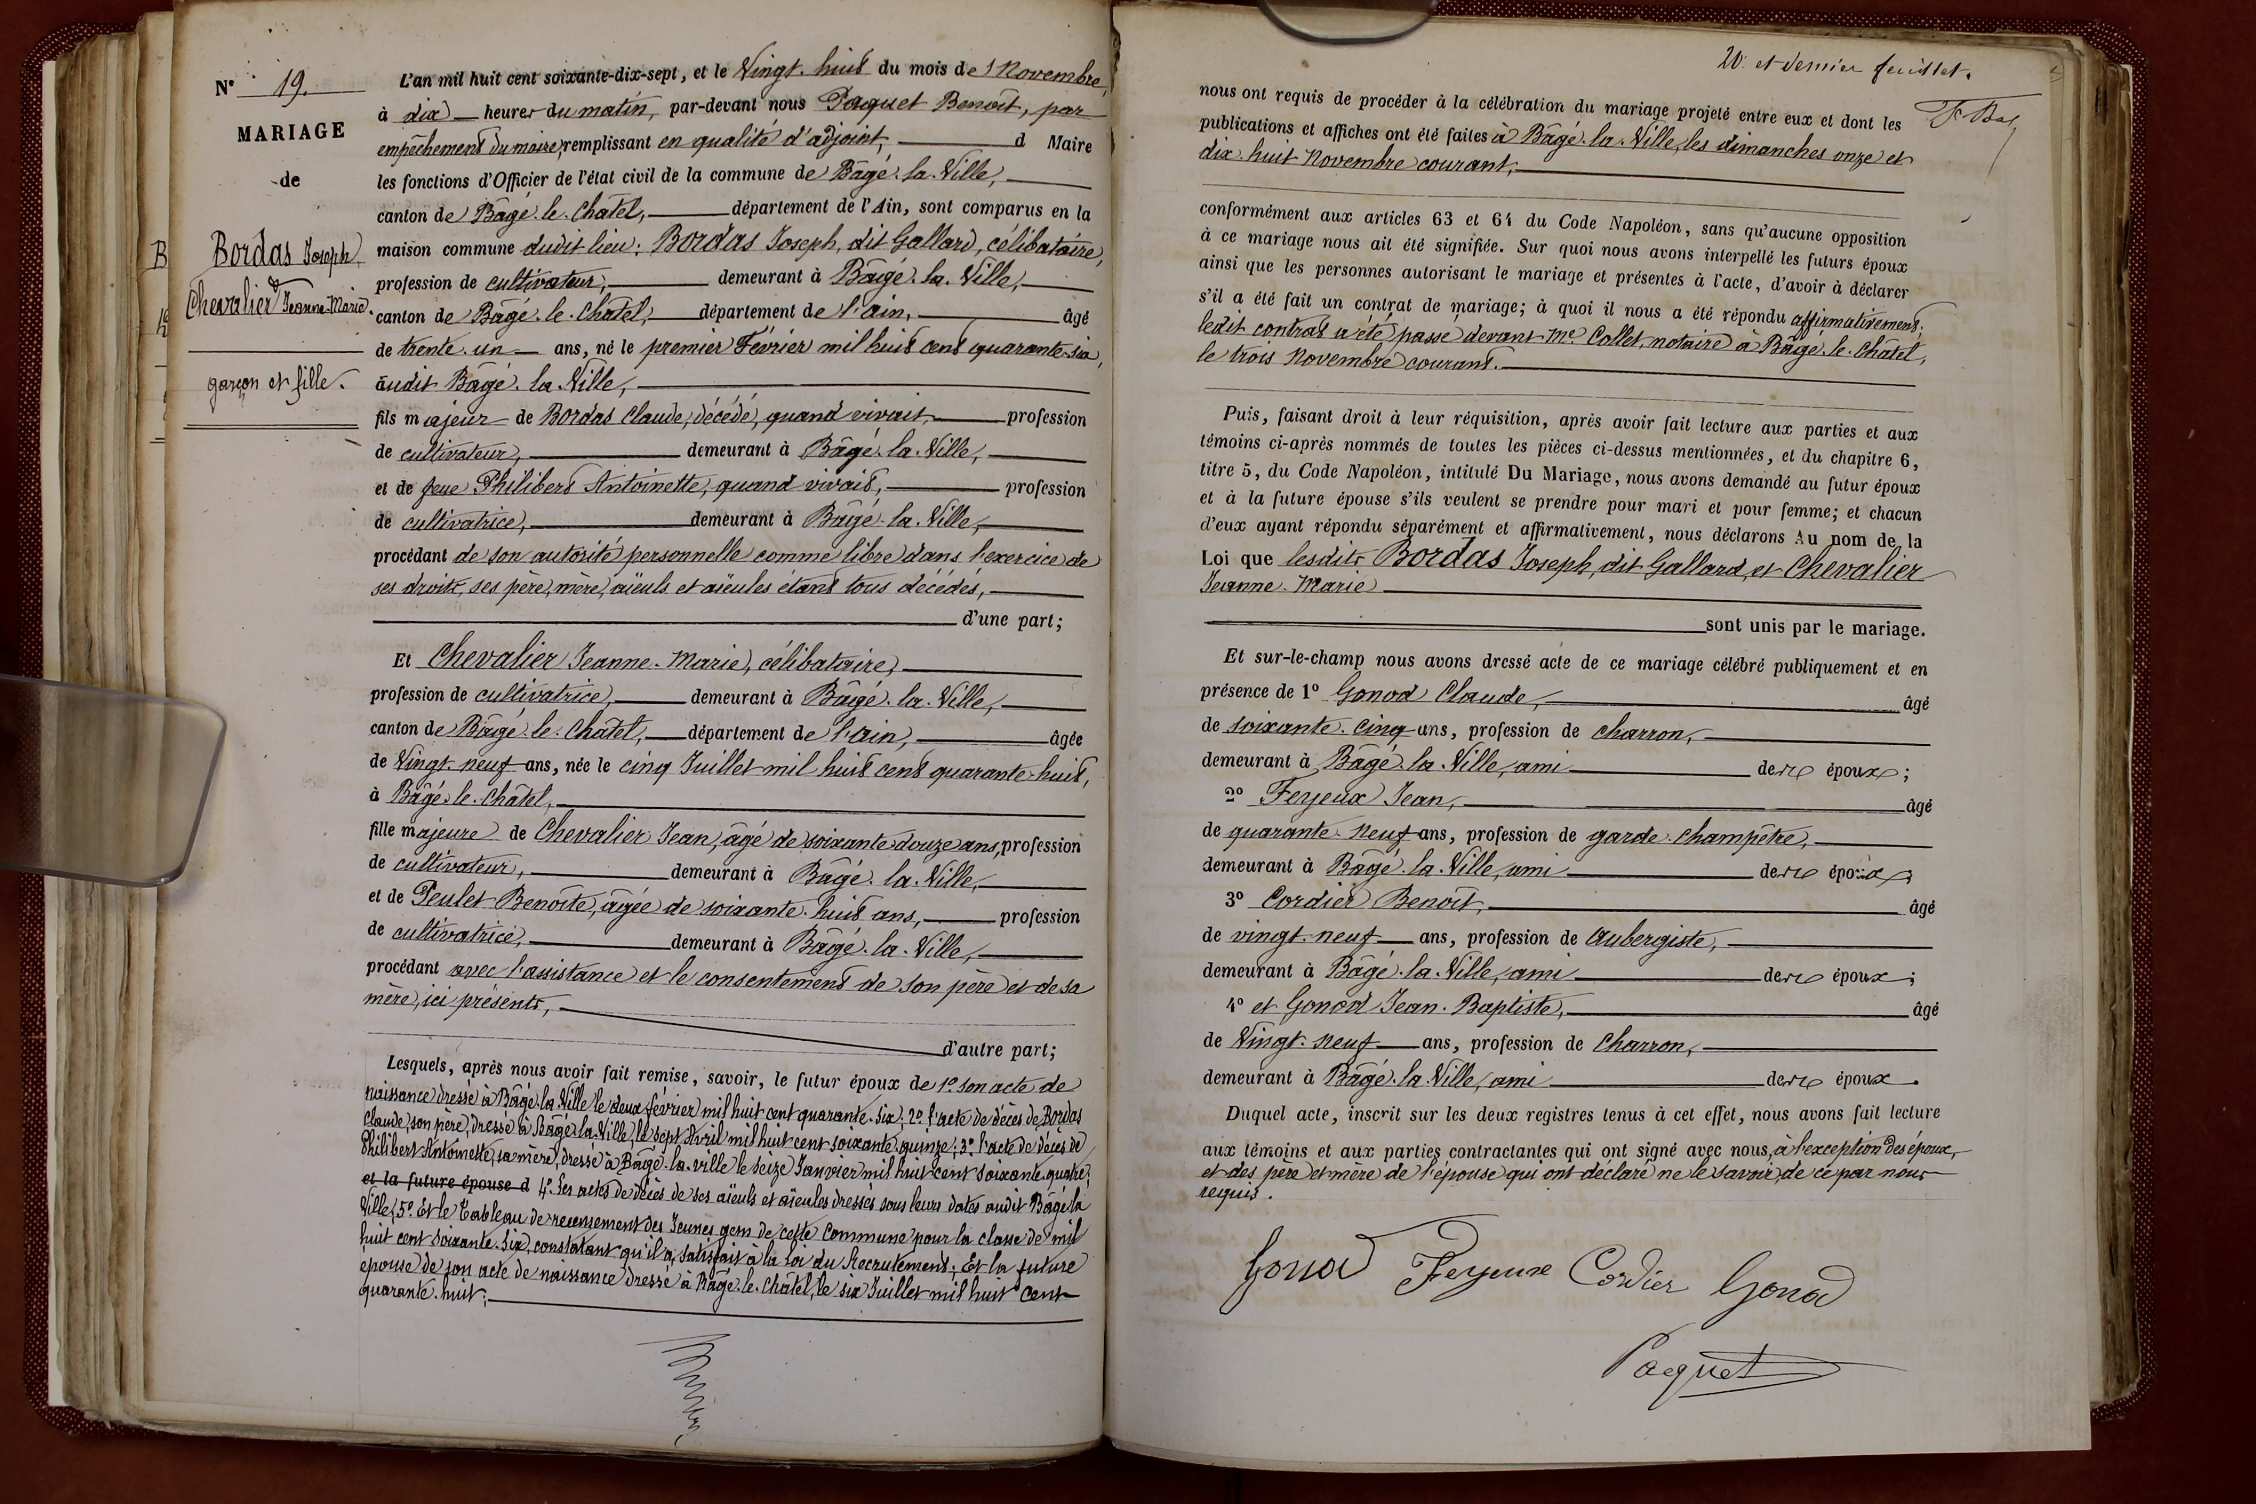 N° 19.
MARIAGE
de
Bordas Joseph
&
Chevalier Jeanne-Marie.
garçon et fille.
L'an mil huit cent soixante-dix-sept, et le Vingt-huit du mois de Novembre,
à dix heures du matin, par-devant nous Paquet Benoît, par
empêchement du maire, remplissant en qualité d'adjoint, d Maire
les fonctions d'Officier de l'état civil de la commune de Bâgé-la-Ville,
canton de Bâgé-le-Châtel, département de l'Ain, sont comparus en la
maison commune dudit lieu: Bordas Joseph, dit Gallard, célibataire,
profession de cultivateur, demeurant à Bâgé-la-Ville,
canton de Bâgé-le-Châtel, département de l'ain, âgé
de trente-un ans, né le premier Février mil huit cent quarante-six,
audit Bâgé-la-Ville,
fils majeur de Bordas Claude, décédé, quand vivait, profession
de cultivateur, demeurant à Bâgé-la-Ville,
et de feue Philibert Antoinette, quand vivait, profession
de cultivatrice, demeurant à Bâgé-la-Ville,
procédant de son autorité personnelle comme libre dans l'exercice de
ses droits, ses père, mère, aïeuls et aïeules étant tous décédés,
d'une part;
Et Chevalier Jeanne-Marie, célibataire,
profession de cultivatrice, demeurant à Bâgé-la-Ville,
canton de Bâgé-le-Châtel, département de l'ain, âgée
de Vingt-neuf ans, née le cinq Juillet mil huit cent quarante-huit,
à Bâgé-le-Châtel,
fille majeure de Chevalier Jean, âgé de soixante-douze ans, profession
de cultivateur, demeurant à Bâgé-la-Ville,
et de Peulet Benoîte, âgée de soixante-huit ans, profession
de cultivatrice, demeurant à Bâgé-la-Ville,
procédant avec l'assistance et le consentement de son père et de sa
mère, ici présents,
d'autre part;
Lesquels, après nous avoir fait remise, savoir, le futur époux de 1° son acte de
naissance dressé à Bâgé-la-Ville le deux février mil huit cent quarante-six; 2° l'acte de décès de Bordas
Claude, son père, dressé à Bâgé-la-Ville, le sept Avril mil huit cent soixante-quinze; 3° l'acte de décès de
Philibert Antoinette, sa mère, dressé à Bâgé-la-ville le seize Janvier mil huit cent soixante-quatre;
et la future épouse d 4° Les actes de décès de ses aïeuls et aïeules dressés sous leurs dates audit Bâgé-la
Ville, 5° Et le Tableau de recensement des Jeunes gens de cette Commune pour la classe de mil
huit cent soixante-six, constatant qu'il a satisfait à la loi du Recrutement; Et la future
épouse de son acte de naissance dressé à Bâgé-le-Châtel, le six Juillet mil huit cent
quarante-huit;
20e et dernier feuillet.
nous ont requis de procéder à la célébration du mariage projeté entre eux et dont les
publications et affiches ont été faites à Bâgé-la-Ville, les dimanches onze et
dix-huit Novembre courant,
conformément aux articles 63 et 64 du Code Napoléon, sans qu'aucune opposition
à ce mariage nous ait été signifiée. Sur quoi nous avons interpellé les futurs époux
ainsi que les personnes autorisant le mariage et présentes à l'acte, d'avoir à déclarer
s'il a été fait un contrat de mariage; à quoi il nous a été répondu affirmativement;
ledit contrat a été passé devant Me Collet, notaire à Bâgé-le-Châtel,
le trois Novembre courant.
Puis, faisant droit à leur réquisition, après avoir fait lecture aux parties et aux
témoins ci-après nommés de toutes les pièces ci-dessus mentionnées, et du chapitre 6,
titre 5, du Code Napoléon, intitulé Du Mariage, nous avons demandé au futur époux
et à la future épouse s'ils veulent se prendre pour mari et pour femme; et chacun
d'eux ayant répondu séparément et affirmativement, nous déclarons Au nom de la
Loi que lesdits Bordas Joseph, dit Gallard, et Chevalier
Jeanne-Marie
sont unis par le mariage.
Et sur-le-champ nous avons dressé acte de ce mariage célébré publiquement et en
présence de 1° Gonod Claude, âgé
de soixante-cinq ans, profession de charron,
demeurant à Bâgé-la-Ville, ami des époux;
2° Feyeux Jean, âgé
de quarante-neuf ans, profession de garde-champêtre,
demeurant à Bâgé-la-Ville, ami des époux;
3° Cordier Benoît, âgé
de vingt-neuf ans, profession de Aubergiste,
demeurant à Bâgé-la-Ville, ami des époux;
4° et Gonod Jean-Baptiste, âgé
de Vingt-neuf ans, profession de Charron,
demeurant à Bâgé-la-Ville, ami des époux.
Duquel acte, inscrit sur les deux registres tenus à cet effet, nous avons fait lecture
aux témoins et aux parties contractantes qui ont signé avec nous, à l'exception des époux,
et des père et mère de l'épouse qui ont déclaré ne le savoir, de ce par nous
requis.
Gonod Feyeux Cordier Gonod
Paquet